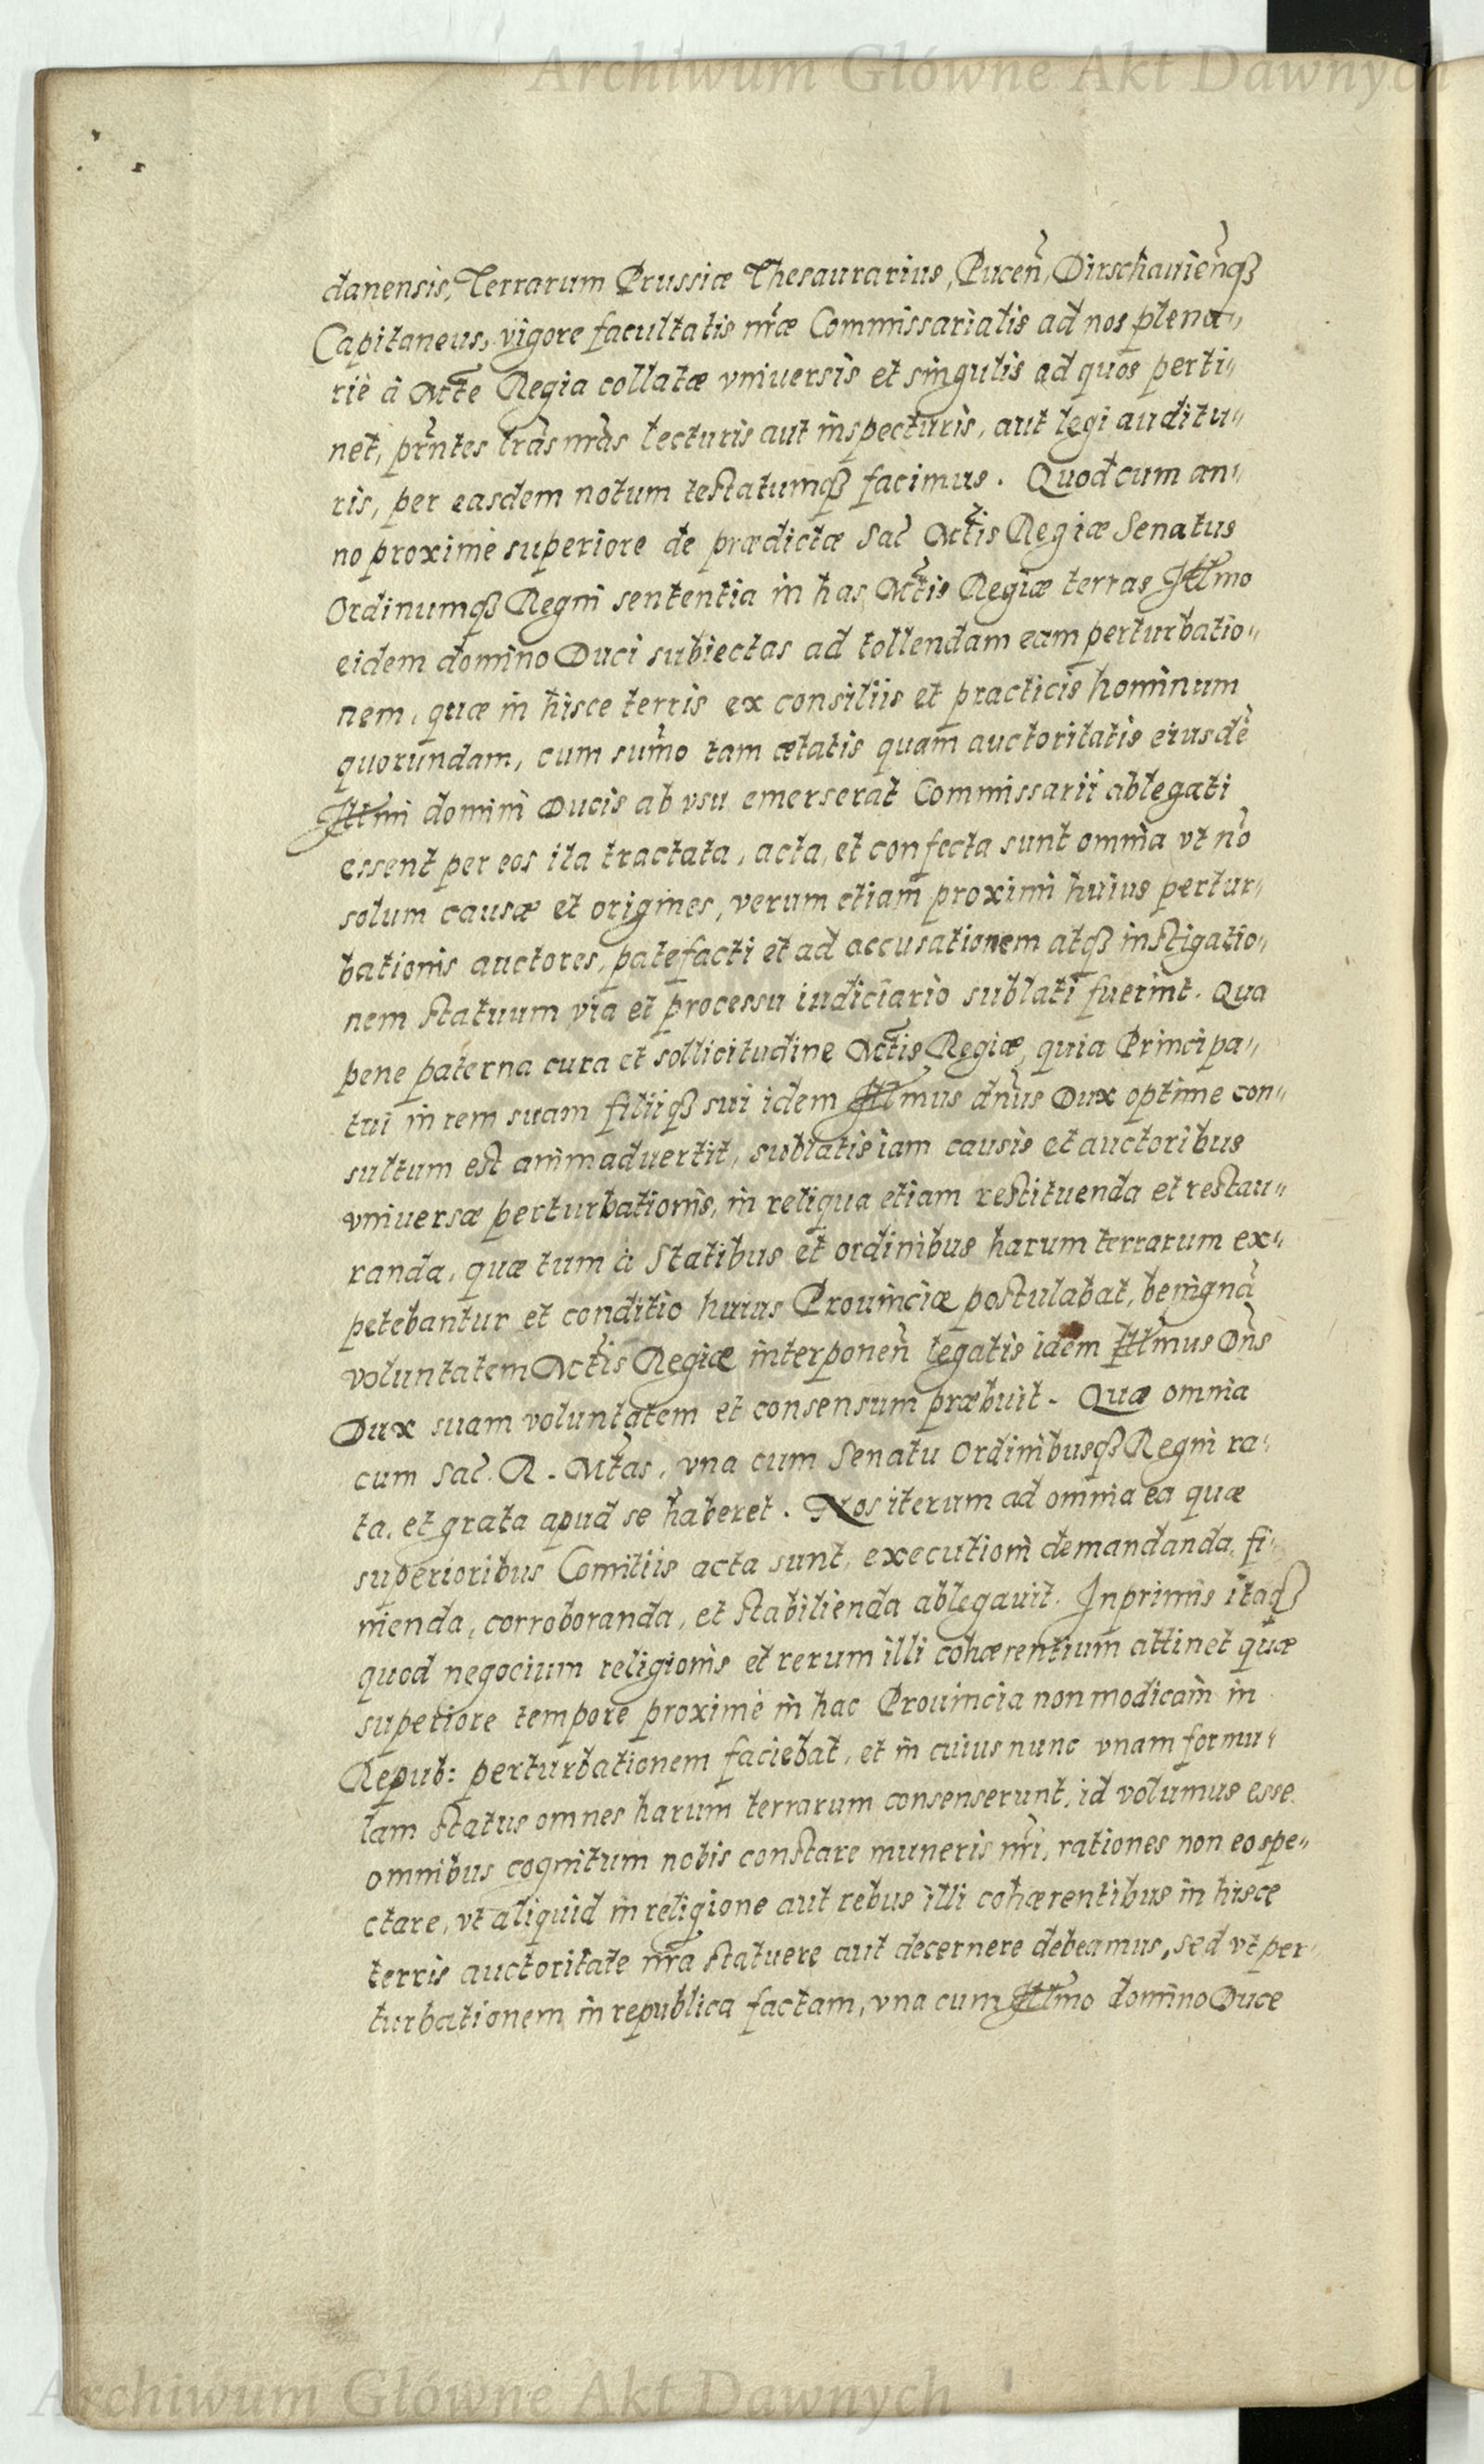 Archiwum Główne Akt Dawnych
danensis, Terrarum Prussiæ Thesaurarius, Pucen̄, Dirschauien̄qꝫ
Capitaneus, vigore facultatis nr̄æ Commissarialis ad nos plena„
riè à Mt̄e Regia collatæ vniuersis et singulis ad quos perti„
net, pr̄ntes lrās nrās lecturis aut inspecturis, aut legi auditu„
ris, per easdem notum testatumqꝫ facimus. Quod cum an„
no proximè superiore de prædictæ Sac̄ Mt̄is Regiæ Senatus
Ordinumqꝫ Regni sententia in has Mt̄is Regiæ terras Illmo
eidem domino Duci subiectas ad tollendam eam perturbatio„
nem, quæ in hisce terris ex consiliis et practicis hominum
quorundam, cum sum̄o tam ætatis quam auctoritatis eiusdē
Illmi domini Ducis ab vsu emerserat Commissarii ablegati
essent per eos ita tractata, acta, et confecta sunt omnia vt nō
solum causæ et origines, verum etiam proximi huius pertur„
bationis auctores, patefacti et ad accusationem atqꝫ instigatio„
nem statuum via et processu iudiciario sublati fuerint. Qua
pene paterna cura et sollicitudine Mt̄is Regiæ, quia Principa„
tui in rem suam filiiqꝫ sui idem Illmus dn̄us Dux optime con„
sultum est animaduertit, sublatis iam causis et auctoribus
vniuersæ perturbationis, in reliqua etiam restituenda et restau„
randa, quæ tum à Statibus et ordinibus harum terrarum ex„
petebantur et conditio huius Prouinciæ postulabat, benignā
voluntatem Mt̄is Regiæ interponen̄ legatis idem Illmus Dn̄s
Dux suam voluntatem et consensum præbuit. Quæ omnia
cum Sac̄. R. Mt̄as, vna cum Senatu Ordinibusqꝫ Regni ra„
ta, et grata apud se haberet. Nos iterum ad omnia ea quæ
superioribus Comitiis acta sunt, executioni demandanda, fi„
nienda, corroboranda, et stabilienda ablegauit. Inprimis itaqꝫ
quod negocium religionis et rerum illi cohærentium attinet quæ
superiore tempore proximè in hac Prouincia non modicam in
Repub: perturbationem faciebat, et in cuius nunc vnam formu„
lam Status omnes harum terrarum consenserunt, id volumus esse
omnibus cognitum nobis constare muneris nr̄i, rationes non eo spe„
ctare, vt aliquid in religione aut rebus illi cohærentibus in hisce
terris auctoritate nr̄a statuere aut decernere debeamus, sed vt per„
turbationem in republica factam, vna cum Illmo domino Duce
Archiwum Główne Akt Dawnych